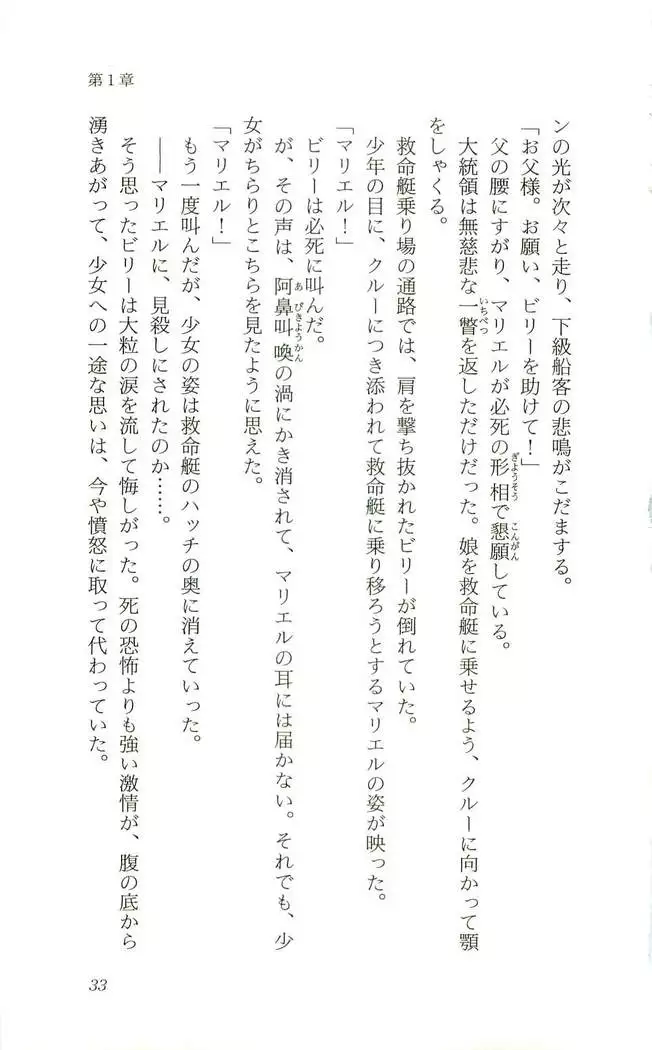 第1章
ンの光が次々と走り、下級船客の悲鳴がこだまする。
「お父様。お願い、ビリーを助けて！」
父の腰にすがり、マリエルが必死の形相で懇願している。
ぎょうそう
こんがん
大統領は無慈悲な一瞥を返しただけだった。娘を救命艇に乗せるよう、クルーに向かって顎
いちべつ
をしゃくる。
救命艇乗り場の通路では、肩を撃ち抜かれたビリーが倒れていた。
少年の目に、クルーにつき添われて救命艇に乗り移ろうとするマリエルの姿が映った。
「マリエル！」
ビリーは必死に叫んだ。
が、その声は、阿鼻叫喚の渦にかき消されて、マリエルの耳には届かない。それでも、少
あびきょうかん
女がちらりとこちらを見たように思えた。
「マリエル！」
もう一度叫んだが、少女の姿は救命艇のハッチの奥に消えていった。
――マリエルに、見殺しにされたのか……。
そう思ったビリーは大粒の涙を流して悔しがった。死の恐怖よりも強い激情が、腹の底から
湧きあがって、少女への一途な思いは、今や憤怒に取って代わっていた。
33